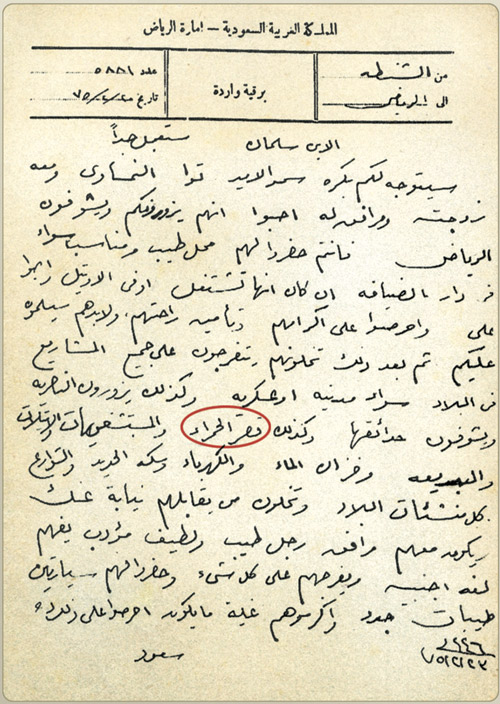 المملكة العربية السعودية – امارة الرياض
من الشنطه
الى الرياض
برقية واردة
عدد ٥٨٨١
تاريخ
الابن سلمان مستعجل جداً
سيتوجه لكم بكره سمو الامير توا النمساوى ومعه
زوجته ومرافق له احبوا انهم يزورونكم ويشوفون
الرياض فانتم حضروا لهم محل طيب ومناسب سواء
فى دار الضيافه ان كان انها تشتغل او فى الاوتيل
على واحرصوا على اكرامهم وتأمين راحتهم، ولابدهم سيلموه
عليكم ثم بعد ذلك تخلونهم يتفرجون على جميع المشاريع
فى البلاد سواء مدنيه او عسكريه وكذلك يزورون الناصريه
ويشوفون حدائقها وكذلك قصر الحمراء والمستشفيات
وخزان الماء والكهرباء وسكه الحديد والشوارع
كل منشئات البلاد وتخلون من يقابلهم نيابة عنك
يكون معهم مرافق رجل طيب ولطيف مؤدب يفهم
لغه اجنبيه ويفرجهم على كل شىء وحضروا لهم سيارتين
طيبات جدد واكرموهم غاية ما يكون احرصوا على ذلك
سعود